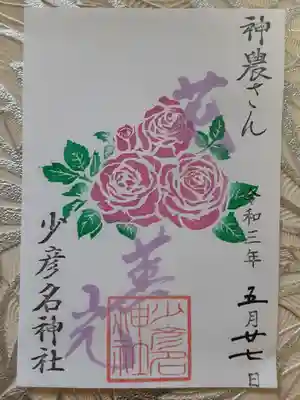 神農さん
令和三年
五月廿七日
花
少彦名神社
少彦名
神社